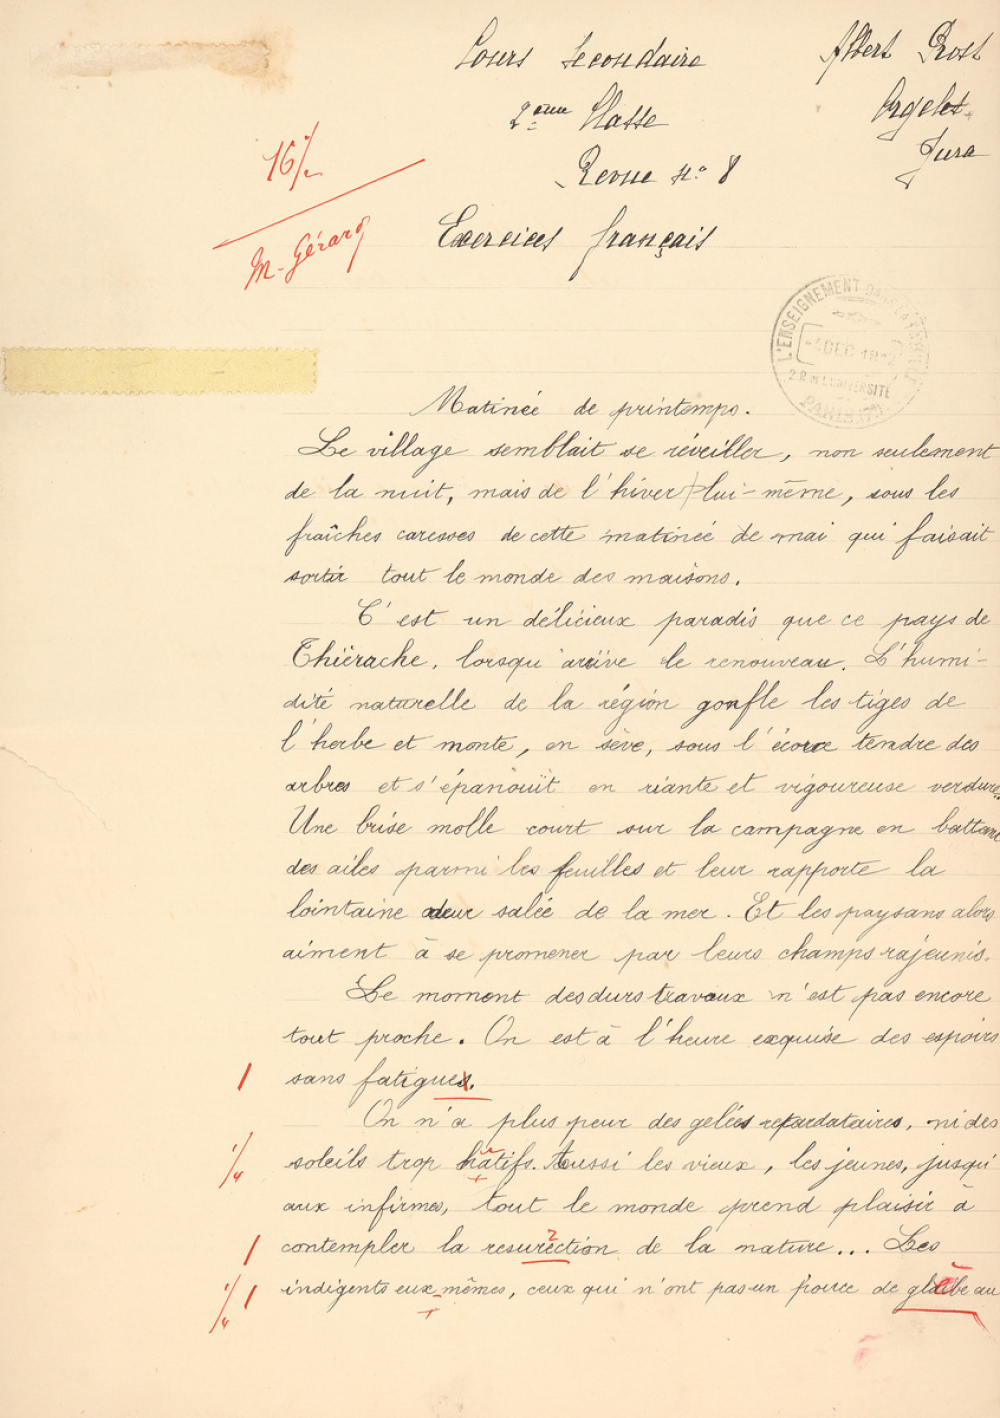 Cours Secondaire
Albert Prost
2ème Classe
Orgelet
Jura
Revue n° 8
16 1/2
M. Gérard
Exercices français
L'ENSEIGNEMENT DANS LA
4 DEC
2 R de L'UNIVERSITÉ
PARIS
Matinée de printemps.
Le village semblait se réveiller, non seulement
de la nuit, mais de l'hiver lui-même, sous les
fraîches caresses de cette matinée de mai qui faisait
sortir tout le monde des maisons.
C'est un délicieux paradis que ce pays de
Thiérache, lorsqu'arrive le renouveau. L'humi-
dité naturelle de la région gonfle les tiges de
l'herbe et monte, en sève, sous l'écorce tendre des
arbres et s'épanouit en riante et vigoureuse verdure.
Une brise molle court sur la campagne en battant
des ailes parmi les feuilles et leur rapporte la
lointaine odeur salée de la mer. Et les paysans alors
aiment à se promener par leurs champs rajeunis.
Le moment des durs travaux n'est pas encore
tout proche. On est à l'heure exquise des espoirs
1 sans fatigues.
On n'a plus peur des gelées retardataires, ni des
1/4 soleils trop hâtifs. Aussi les vieux, les jeunes, jusqu'
aux infirmes, tout le monde prend plaisir à
1 contempler la resurection de la nature... Les
1/4 1 indigents eux-mêmes, ceux qui n'ont pas un pouce de glèbe au